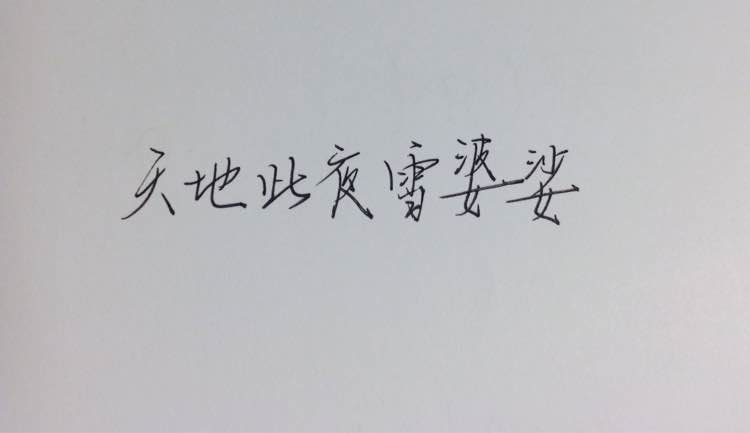 天地此夜雪婆娑